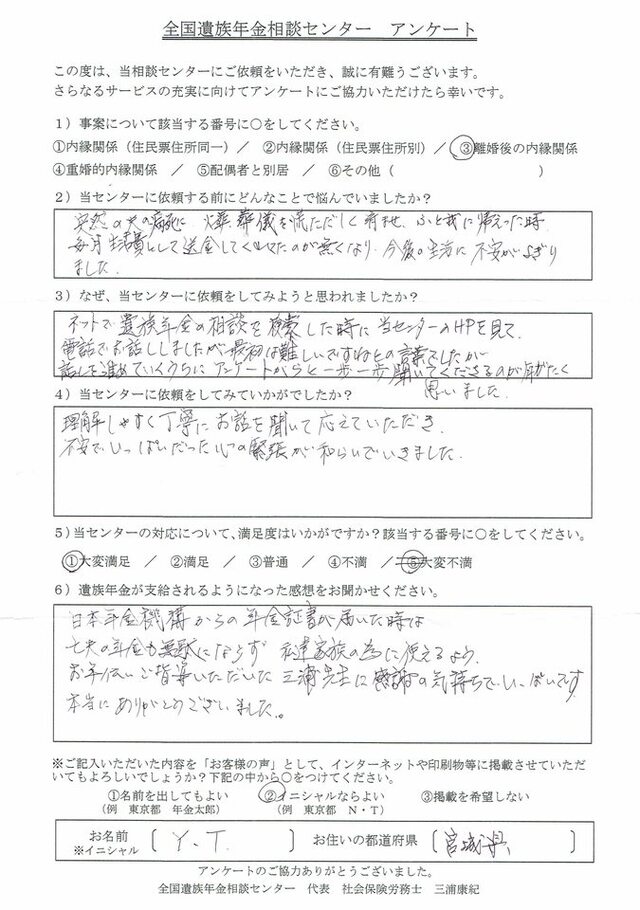 全国遺族年金相談センター　アンケート
この度は、当相談センターにご依頼をいただき、誠に有難うございます。
さらなるサービスの充実に向けてアンケートにご協力いただけたら幸いです。
1）事案について該当する番号に○をしてください。
①内縁関係（住民票住所同一）／　②内縁関係（住民票住所別）／　③離婚後の内縁関係
④重婚的内縁関係　／　⑤配偶者と別居　／　⑥その他（　　　　　　　）
2）当センターに依頼する前にどんなことで悩んでいましたか？
突然の夫の病死に　火葬　葬儀を慌ただしく済ませ、ふと我に帰えった時
毎月生活費として送金してくれてたのが無くなり、今後の生活に不安がよぎり
ました。
3）なぜ、当センターに依頼をしてみようと思われましたか？
ネットで遺族年金の相談を検索した時に当センターのHPを見て、
電話でお話ししましたが最初は難しいですねとの言葉でしたが
話しを進めていくうちにアンケートからと一歩一歩聞いてくださるのが有がたく
思いました。
4）当センターに依頼をしてみていかがでしたか？
理解しやすく丁寧にお話を聞いて応えていただき、
不安でいっぱいだった心の緊張が和らいでいきました。
5）当センターの対応について、満足度はいかがですか？該当する番号に○をしてください。
①大変満足　／　②満足　／　③普通　／　④不満　／　⑤大変不満
6）遺族年金が支給されるようになった感想をお聞かせください。
日本年金機構からの年金証書が届いた時は
亡夫の年金も無駄にならず　私達家族の為に使えるよう、
お手伝いご指導いただいた三浦先生に感謝の気持ちでいっぱいです
本当にありがとうございました。
※ご記入いただいた内容を「お客様の声」として、インターネットや印刷物等に掲載させていただ
いてもよろしいでしょうか？下記の中から○をつけてください。
①名前を出してもよい　②イニシャルならよい　③掲載を希望しない
（例　東京都　年金太郎）　（例　東京都　N・T）
お名前　（　Y．T．　）　お住いの都道府県（　宮城県　）
※イニシャル
アンケートのご協力ありがとうございました。
全国遺族年金相談センター　代表　社会保険労務士　三浦康紀